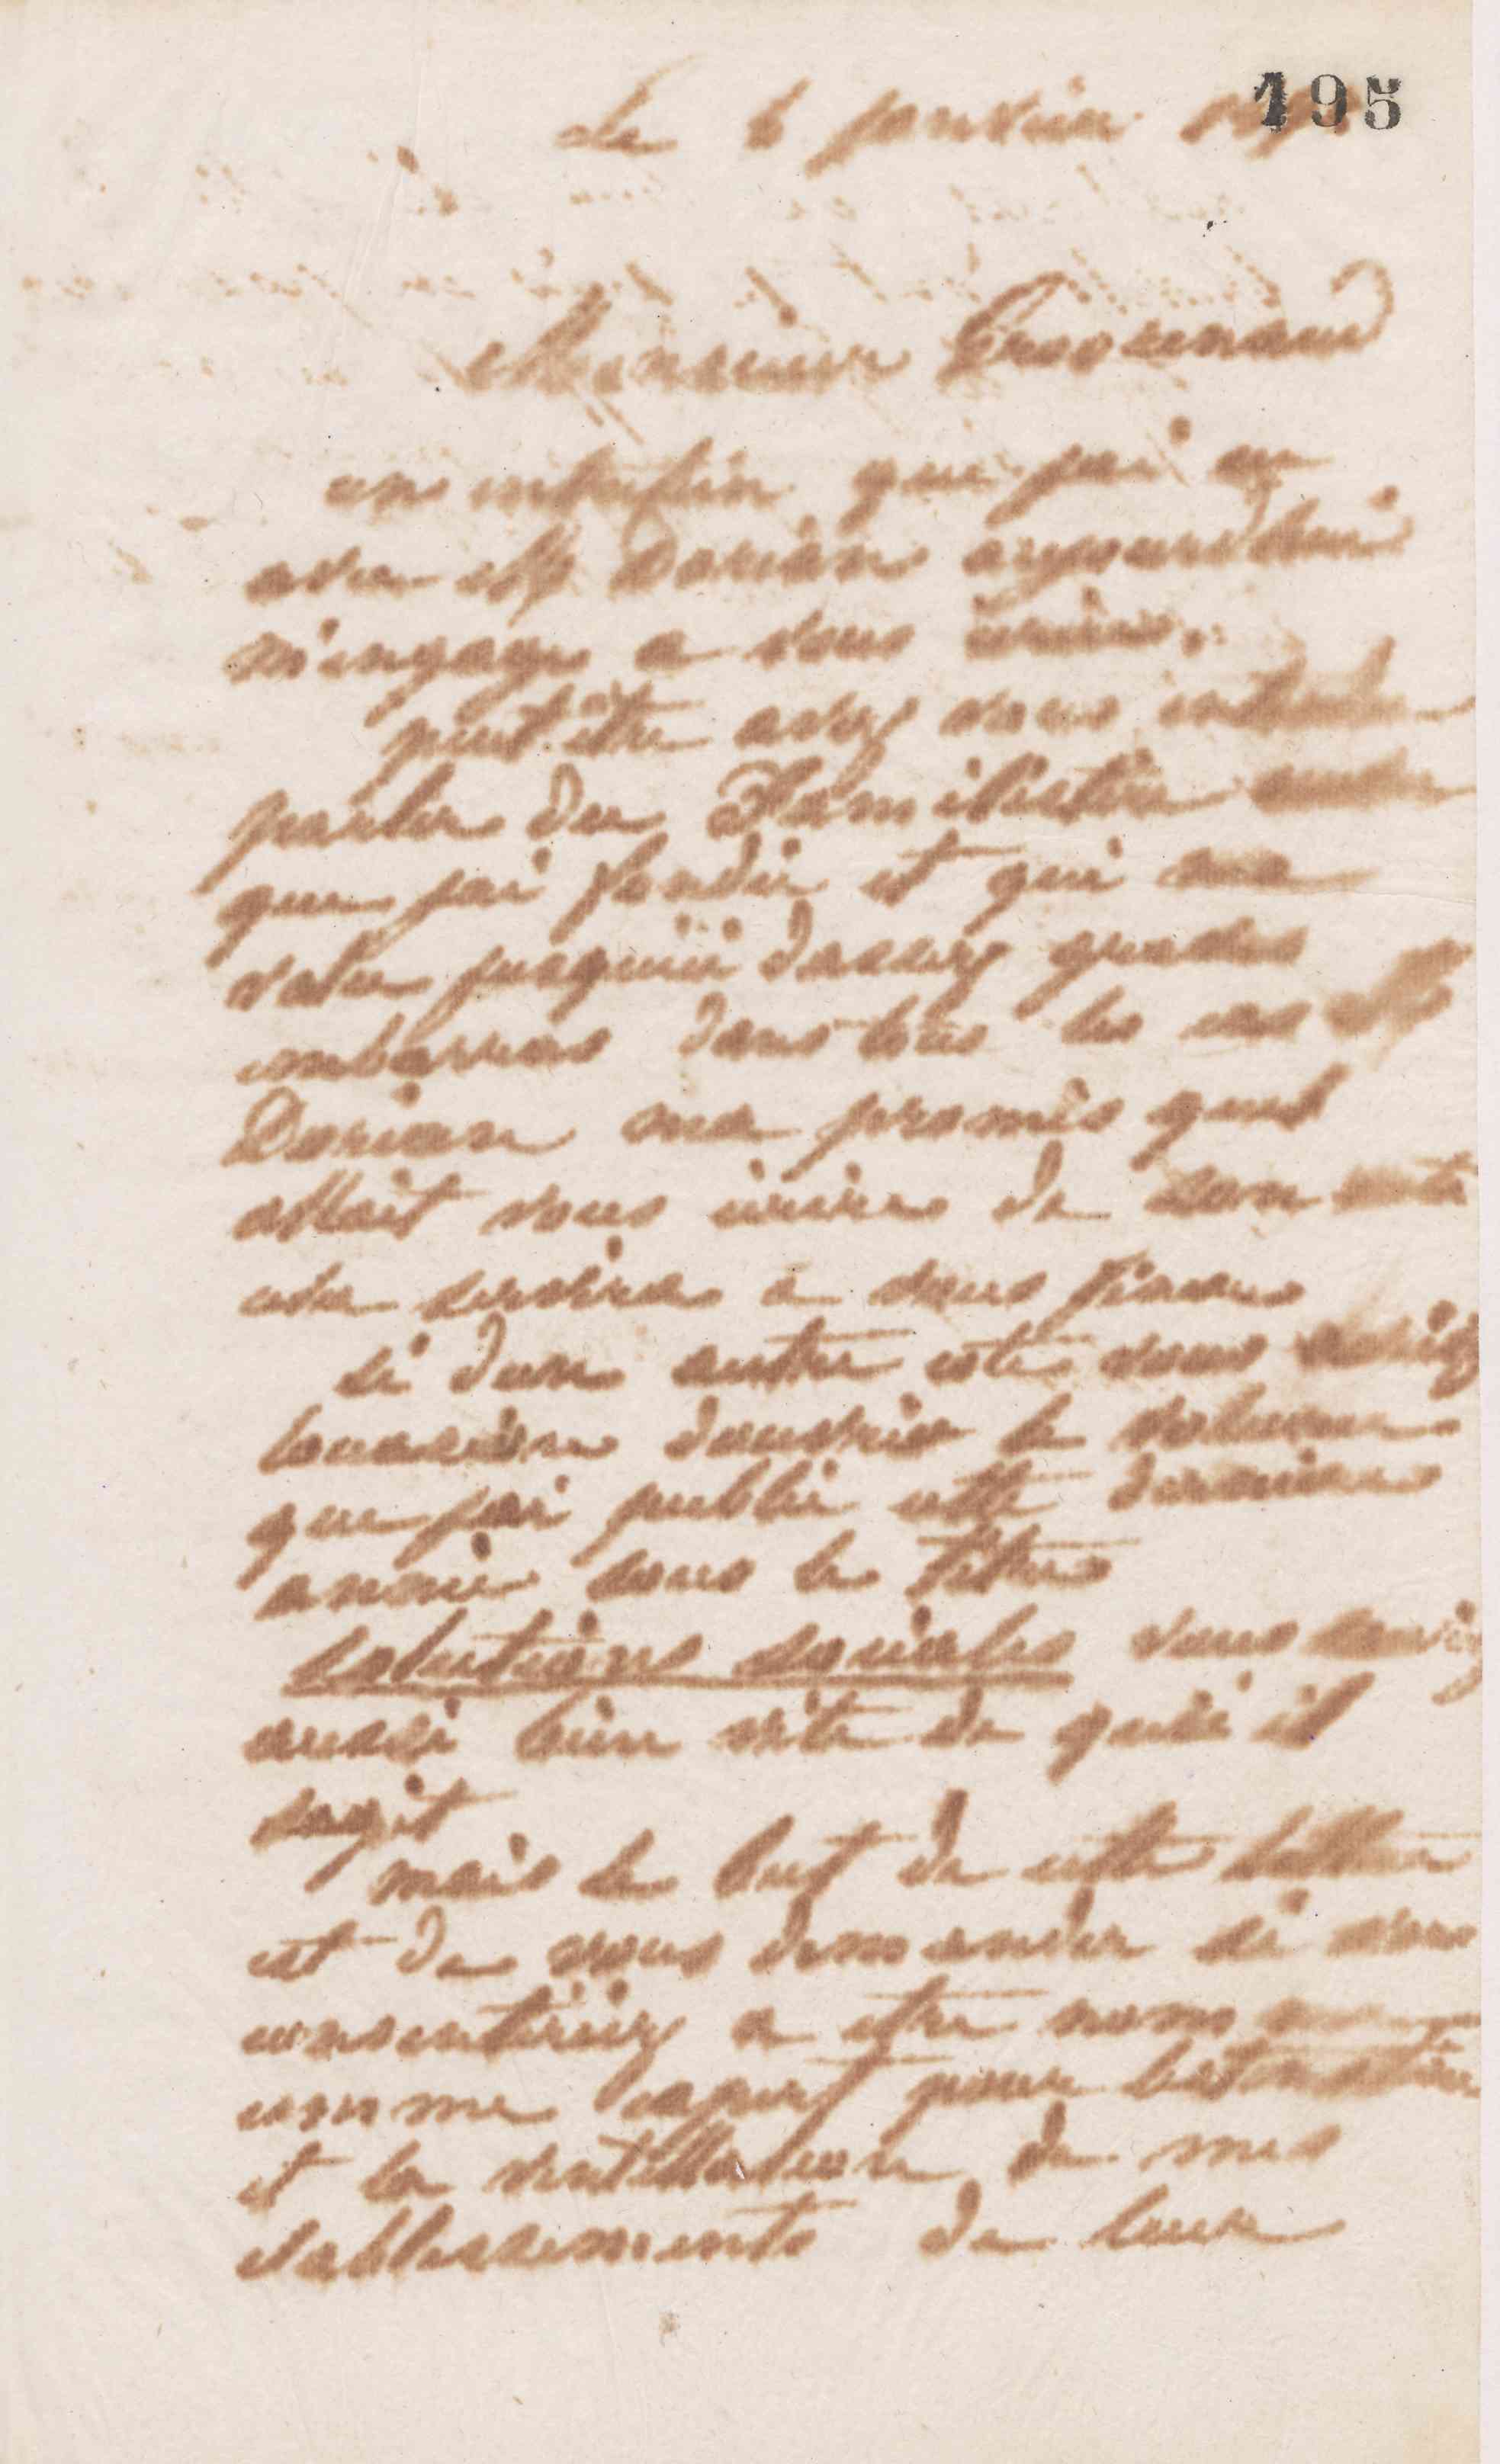 195
Le 6 janvier
Monsieur Grosrenaud
un entretien que jai eu
avec Mr Dorian aujourdhui
m'engage a vous écrire.
peut être avez vous entendu
parler du Familistère
que jai fondé et qui ma
valu jusquici dassez grandes
embarras dans tous les cas Mr
Dorian ma promis quil
allait vous écrire de son coté
cela servira a vous fixer
si dun autre coté vous aviez
loccasion douvrir le volume
que jai publié cette dernière
année sous le titre
Solutions sociales vous sauriez
aussi bien vite de quoi il
sagit
mais le but de cette lettre
est de vous demander si vous
consentiriez a etre nommé
comme expert pour lestimation
et la ventillation de mes
etablissements de Guise